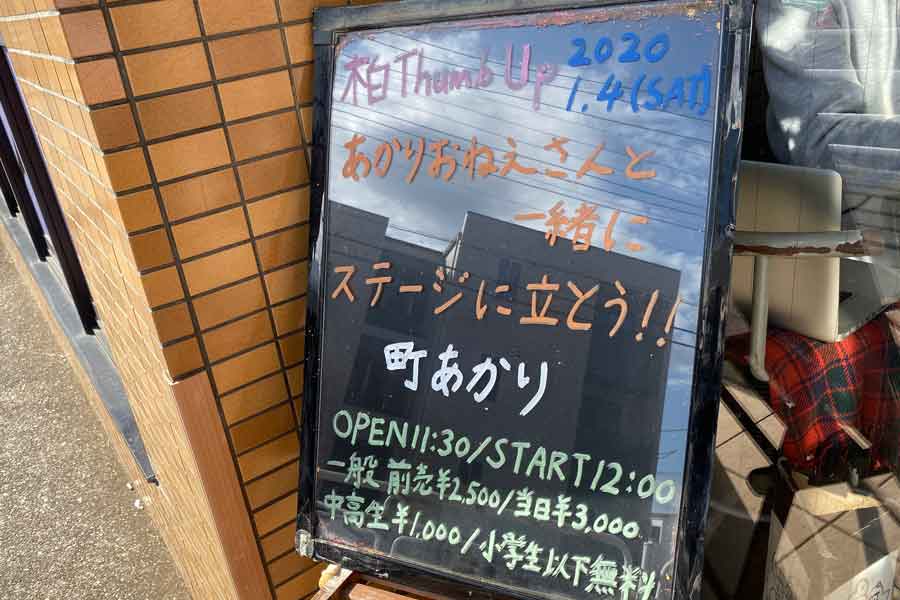 柏Thumb Up
2020
1.4(SAT)
あかりおねえさんと
一緒に
ステージに立とう!!
町あかり
OPEN11:30/START12:00
一般 前売¥2,500/当日¥3,000
中高生¥1,000/小学生以下無料